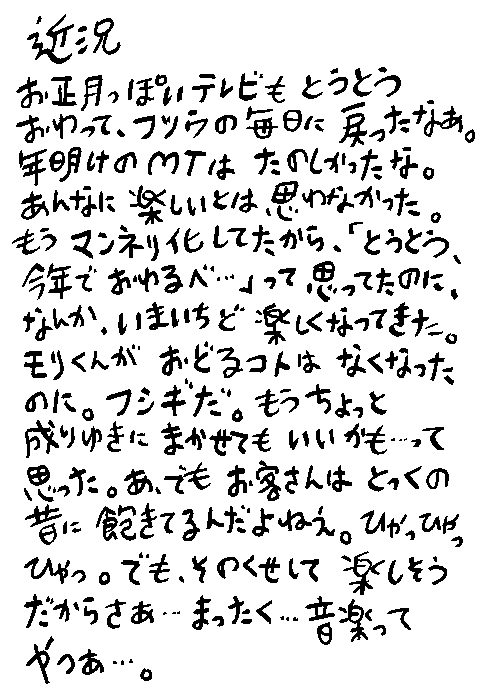 近況
お正月っぽいテレビもとうとう
おわって、フツウの毎日に戻ったなあ。
年明けのMTはたのしかったな。
あんなに楽しいとは思わなかった。
もうマンネリ化してたから、「とうとう、
今年でおわるべ…」って思ってたのに、
なんか、いまいちど楽しくなってきた。
モリくんがおどるコトはなくなった
のに。フシギだ。もうちょっと
成りゆきにまかせてもいいかも…って
思った。あ、でもお客さんはとっくの
昔に飽きてるんだよねえ。ひゃっひゃっ
ひゃっ。でも、そのくせして楽しそう
だからさあ…まったく…音楽って
やつあ…。